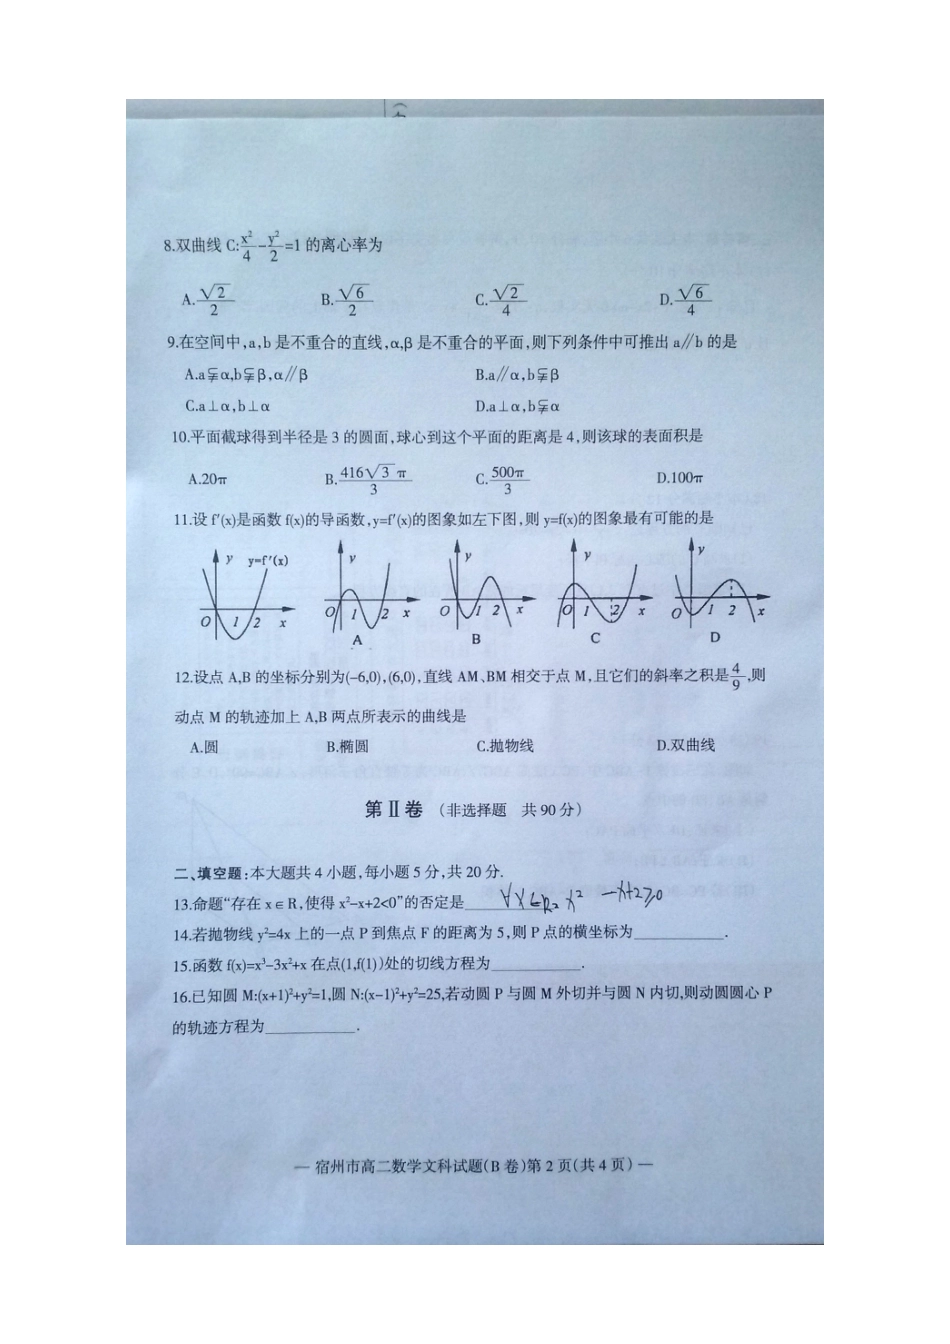 8.双曲线 C:x²/4-y²/2=1 的离心率为
A.√2/2 B.√6/2 C.√2/4 D.√6/4
9.在空间中,a,b 是不重合的直线,α,β 是不重合的平面,则下列条件中可推出 a∥b 的是
A.a⫋α,b⫋β,α∥β B.a∥α,b⫋β
C.a⊥α,b⊥α D.a⊥α,b⫋α
10.平面截球得到半径是 3 的圆面,球心到这个平面的距离是 4,则该球的表面积是
A.20π B.416√3π/3 C.500π/3 D.100π
11.设 f′(x)是函数 f(x)的导函数,y=f′(x)的图象如左下图,则 y=f(x)的图象最有可能的是
y y=f′(x) y y y y
O 1 2 x O 1 2 x O 1 2 x O 1 2 x O 1 2 x
A B C D
12.设点 A,B 的坐标分别为(-6,0),(6,0),直线 AM、BM 相交于点 M,且它们的斜率之积是4/9,则
动点 M 的轨迹加上 A,B 两点所表示的曲线是
A.圆 B.椭圆 C.抛物线 D.双曲线
第Ⅱ卷 (非选择题 共 90 分)
二、填空题:本大题共 4 小题,每小题 5 分,共 20 分.
13.命题“存在 x∈R,使得 x²-x+2<0”的否定是 ∀x∈R, x²-x+2≥0
14.若抛物线 y²=4x 上的一点 P 到焦点 F 的距离为 5,则 P 点的横坐标为 .
15.函数 f(x)=x³-3x²+x 在点(1,f(1))处的切线方程为 .
16.已知圆 M:(x+1)²+y²=1,圆 N:(x-1)²+y²=25,若动圆 P 与圆 M 外切并与圆 N 内切,则动圆圆心 P
的轨迹方程为 .
— 宿州市高二数学文科试题(B 卷)第 2 页(共 4 页) —